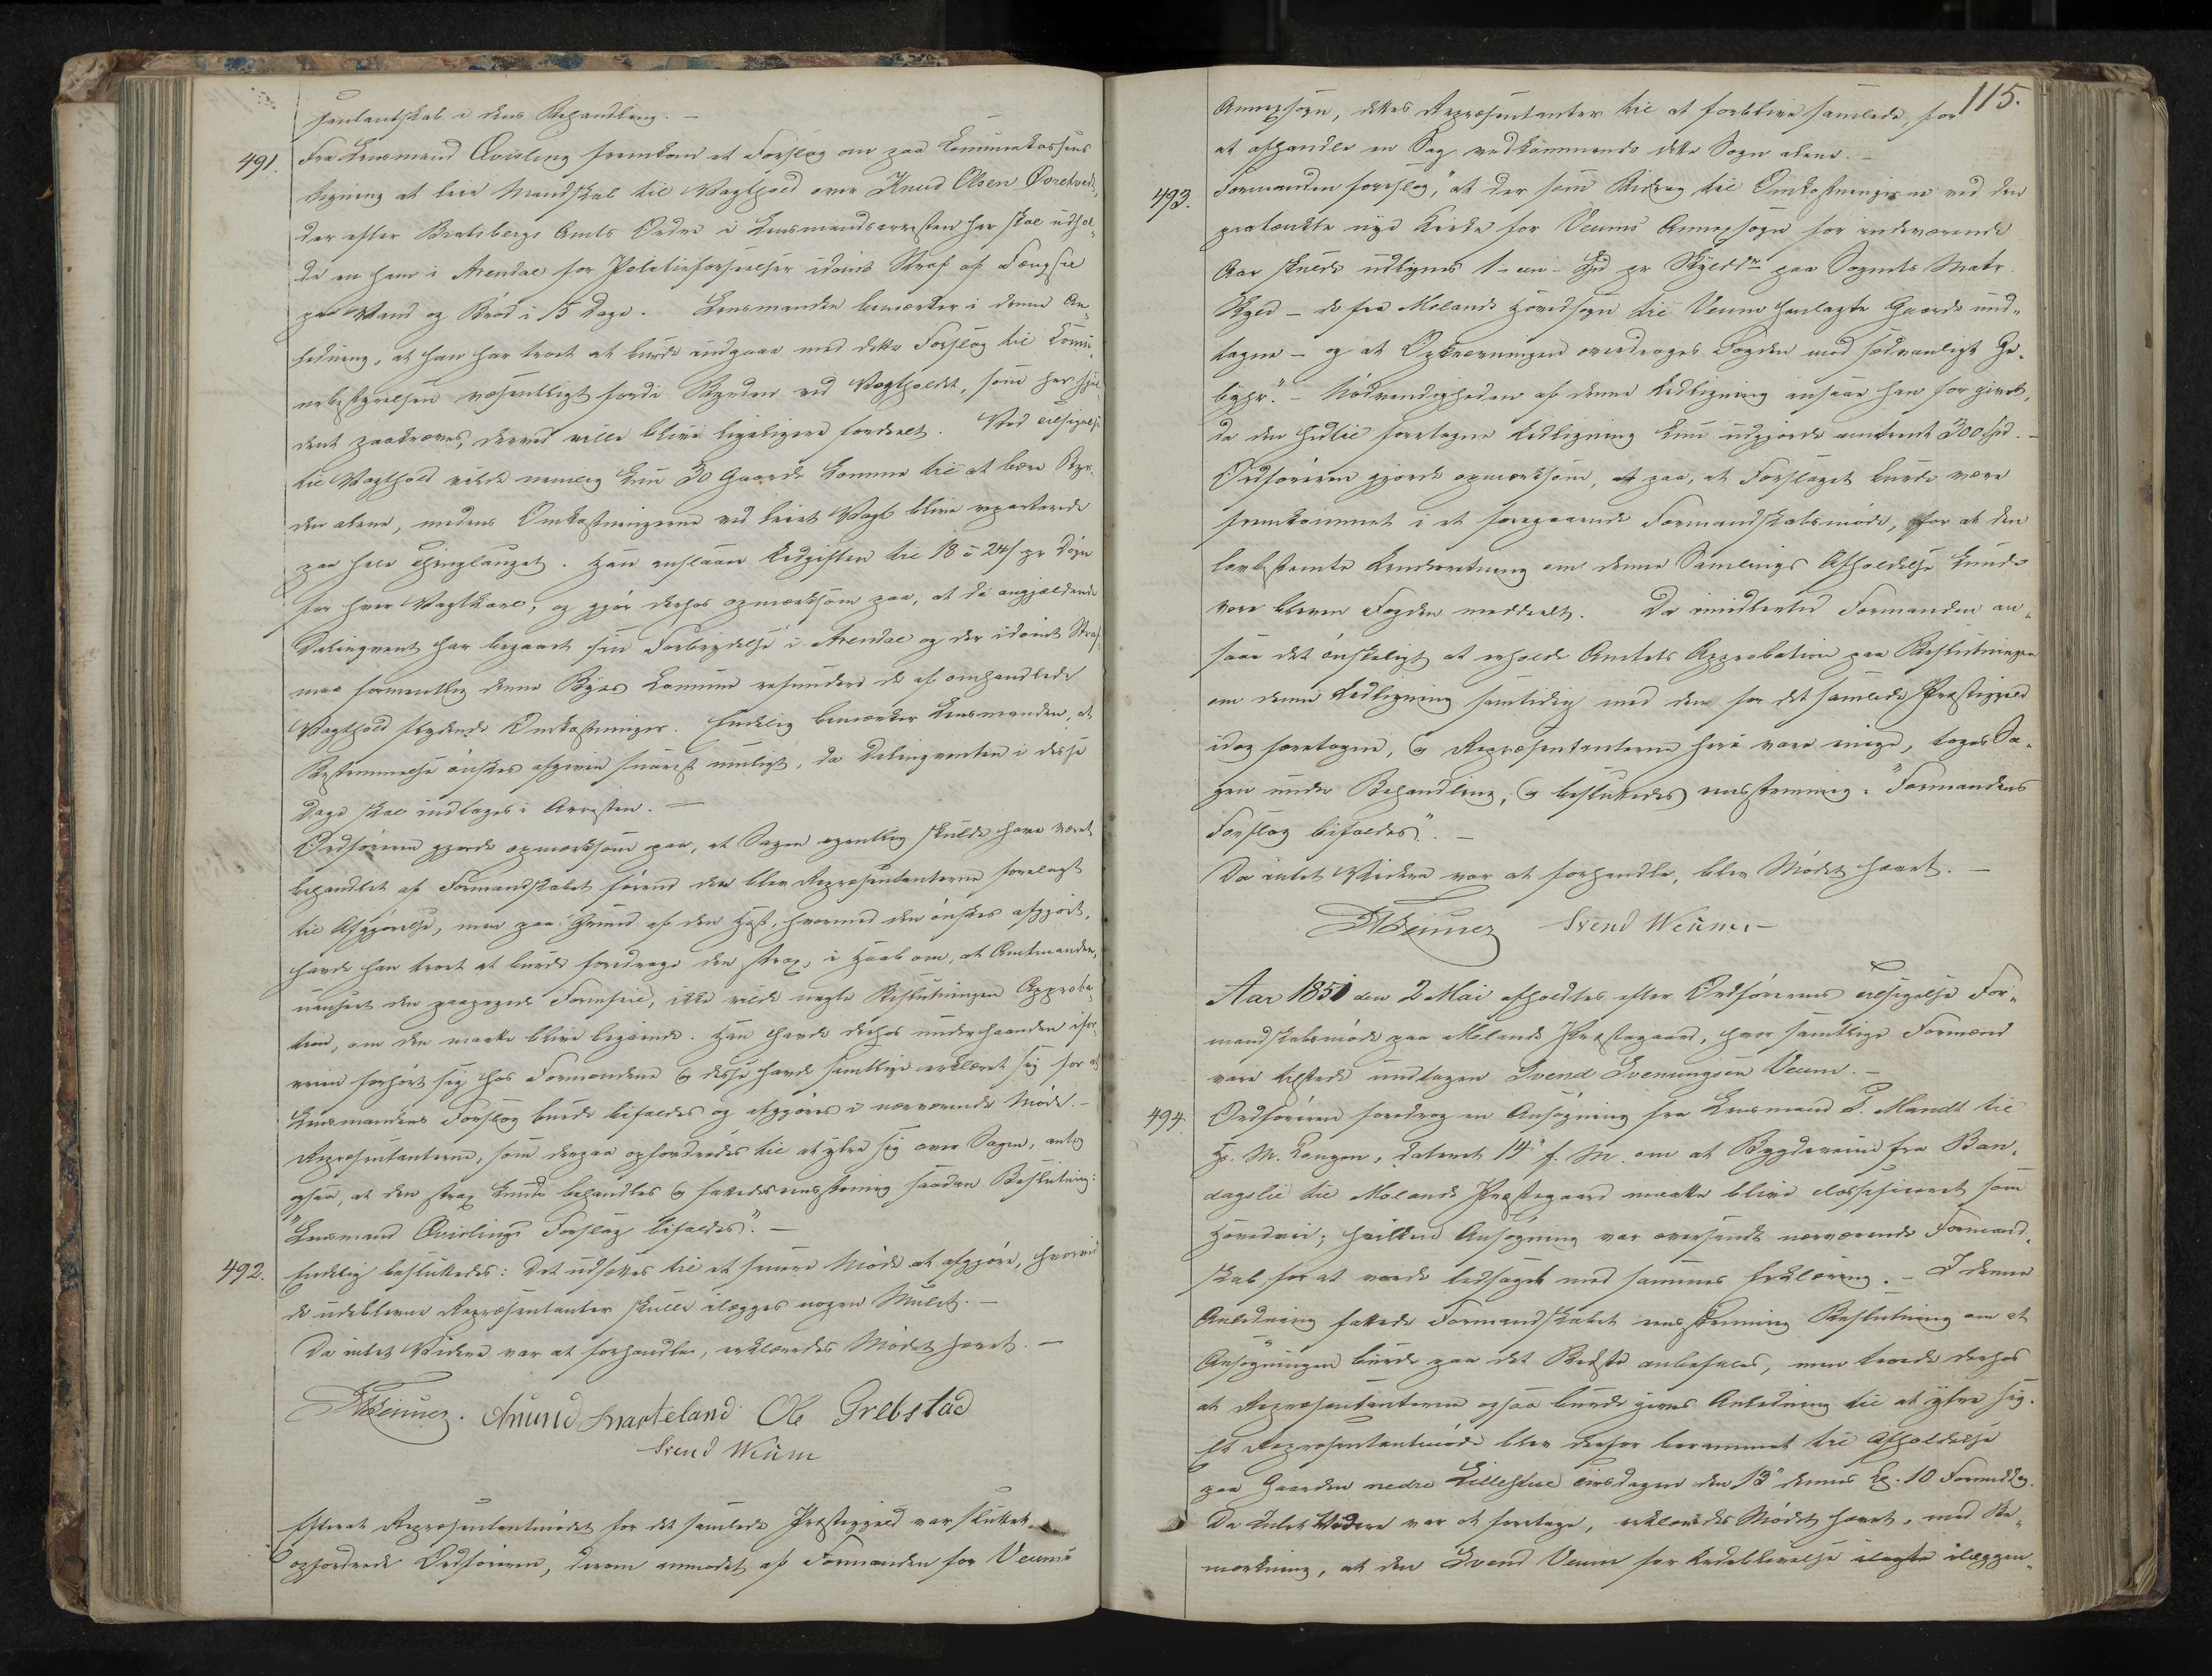 sentantskab i dens Behandling. –
491. Fra Lensmand Qvisling fremkom et Forslag om paa Communekassens
Regning at leie Mandskab til Vagthold over Knud Olsen Øvretvedt,
der efter Bratsbergs Amts Ordre i Lensmandsarresten her skal udhol-
de en ham i Arendal for Politieforseelser idømt Straf af Fængsel
paa Vand og Brød i 15 Dage. Lensmanden bemærker i denne An-
ledning, at han har troet at burde indgaae med dette Forslag til Comu-
nebestyrelsen væsentligt fordi Byrden ved Vagtholdet, som her
paakræves, derved ville blive ligeligere fordeelt. Ved tilsigelse
til Vagthold vilde nemlig kun 30 Gaarde komme til at bære Byr-
den alene, medens Omkostningerne ved leiet Vagt blive reparterede
paa hele Thinglauget. Han anslaaer Udgiften til 18 à 24 s pr Døgn
for hver Vagtkarl, og gjør derhos opmærksom paa, at da angjældende
Delinqvent har begaaet sin Forbrydelse i Arendal og der idømt Straf,
maa formentlig denne Byes Comune refundere de af omhandlede
Vagthold flydende Omkostninger. Endelig bemærker Lensmanden, at
Bestemmelse ønskes afgiven snarest muligt, da Delinqventen i disse
Dage skal indtages i Arresten. –
Ordføreren gjorde opmærksom paa, at Sagen egentlig skulde have været
behandlet af Formandskabet førend den blev Repræsentanterne forelagt
til Afgjørelse, men paa Grund af den Hast, hvormed den ønskes afgjort,
havde han troet at burde foredrage den strax, i Haab om, at Amtmanden,
uanseet den paapegede Formfeil, ikke vilde negte Beslutningen Approba-
tion, om den maatte blive begjærende. Han havde derhos underhaanden
veien forhørt sig hos Formændene og disse havde samtlige erklæret sig for at
Lensmandens Forslag burde bifaldes og afgjøres i nærværende Møde. –
Repræsentanterne, som derpaa opfordredes til at ytre sig over Sagen, antog
ogsaa, at den strax kunde behandles og fattedes eenstemmig saadan Beslutning:
"Lensmand Qvislings Forslag bifaldes". –
492. Endelig besluttedes: Det udsættes til et senere Møde at afgjøre, hvorvidt
de udeblevne Repræsentanter skulle ilægges nogen Mulct. –
Da intet Videre var at forhandle, erklæredes Mødet hævet. –
Anund Svarteland Ole Grebstad
Svend Weüm
Efterat Repræsentantmødet for det samlede Præstegjæld var sluttet,
opfordrede Ordføreren, derom anmodet af Formanden for Veums
115.
Annexsogn, dettes Repræsentanter til at forblive samlede, for
at afhandle en Sag vedkommende dette Sogn alene. –
493. Formanden foreslog, "at der som Bidrag til Omkostningerne ved den
paatænkte nye Kirke for Veums Annexsogn for indeværende
Aar skulde udlignes 1 – een – Spd pr Skylddr paa Sognets Matr.
Skyld – de fra Molands Hovedsogn til Veum henlagte Gaarde und-
tagne – og at Opkrævningen overdrages Fogden mod sædvanligt Ge-
byhr." – Nødvendigheden af denne Udligning ansaae han for givet,
da den hidtil foretagne Udligning kun udgjorde omtrent 300 Spd. –
Ordføreren gjorde opmærksom, at paa, at Forslaget burde være
fremkommet i et foregaaende Formandskabsmøde, for at den
lovbestemte Underretning om denne Samlings Afholdelse kunde
være bleven Fogden meddeelt. Da imidlertid Formanden an-
saae det ønskeligt at erholde Amtets Approbation paa Beslutningen
om denne Udligning samtidig med den for det samlede Præstegjæld
idag foretagne, og Repræsentanterne heri vare enige, toges Sa-
gen under Behandling, og besluttedes eenstemmig: "Formandens
Forslag bifaldes". –
Da intet Videre var at forhandle, blev Mødet hævet. –
Svend Weüm –
Aar 1851 den 2 Mai afholdtes efter Ordførerens tilsigelse For-
mandskabsmøde paa Molands Præstegaard, hvor samtlige Formænd
vare tilstede undtagen Svend Svenungsen Veum. –
494. Ordføreren foredrog en Ansøgning fra Lensmand T. Mandt til
H. M. Kongen, dateret 14de f. M. om at Bygdeveien fra Ban-
dagslie til Molands Præstegaard maatte blive classificeret som
Hovedvei; hvilken Ansøgning var oversendt nærværende Formand-
skab for at vorde ledsaget med sammes Erklæring. – I denne
Anledning fattede Formandskabet eenstemmig Beslutning om at
Ansøgningen burde paa det Bedste anbefales, men troede derhos
at Repræsentanterne ogsaa burde gives Anledning til at ytre sig.
Et Repræsentantmøde blev derfor berammet til Afholdelse
paa Gaarden nedre Lillestue tirsdagen den 13de dennes Kl. 10 Formiddag.
Da Intet Videre var at foretage, erklæredes Mødet hævet, med Be-
mærkning, at den Svend Veum for Udeblivelse ilagte ilæggen-